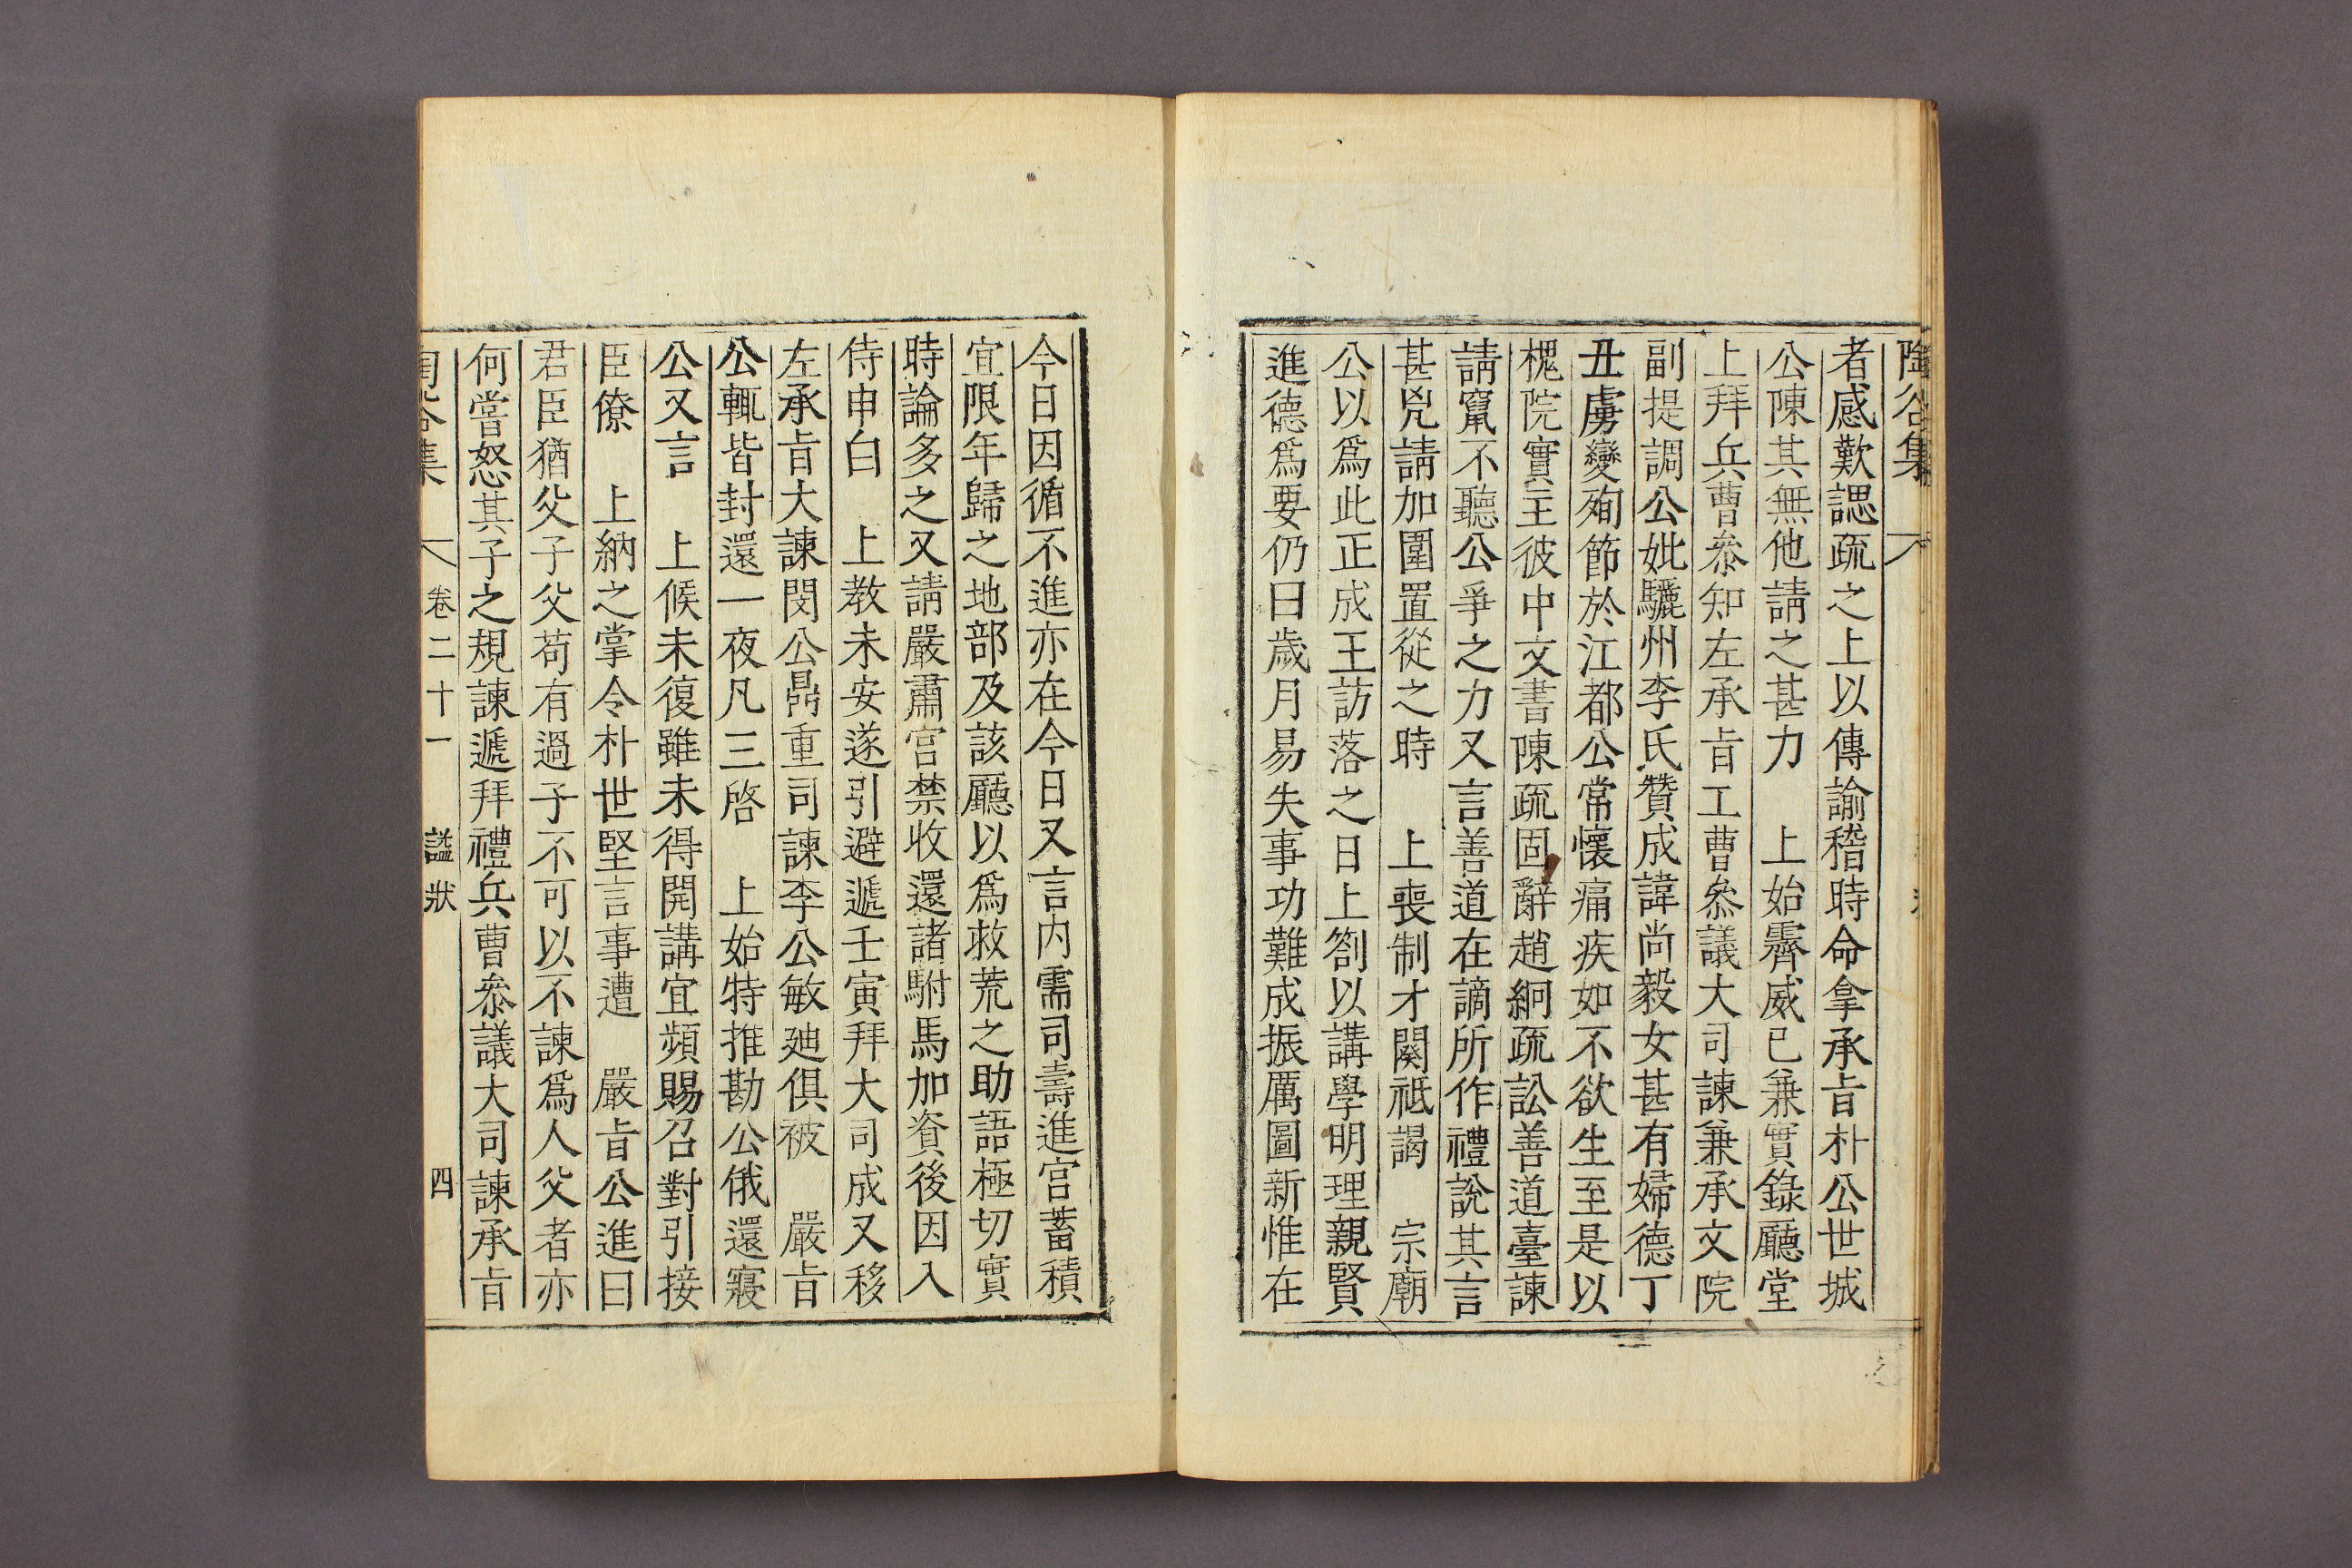 陶谷集
者感歎諰疏之上以傳諭稽時命拿承旨朴公世城
公陳其無他請之甚力　上始霽威已兼實錄廳堂
上拜兵曹叅知左承旨工曹叅議大司諫兼承文院
副提調公妣驪州李氏贊成諱尚毅女甚有婦德丁
丑虜變殉節於江都公常懷痛疾如不欲生至是以
槐院實主彼中文書陳疏固辭趙絅疏訟善道臺諫
請竄不聽公爭之力又言善道在謫所作禮說其言
甚兇請加圍置從之時　上喪制才闋祗謁　宗廟
公以爲此正成王訪落之日上劄以講學明理親賢
進德爲要仍曰歲月易失事功難成振厲圖新惟在
今日因循不進亦在今日又言内需司壽進宮蓄積
宜限年歸之地部及該廳以爲救荒之助語極切實
時論多之又請嚴肅宮禁收還諸駙馬加資後因入
侍申白　上教未安遂引避遞壬寅拜大司成又移
左承旨大諫閔公鼎重司諫李公敏廸俱被　嚴旨
公輒皆封還一夜凡三啓　上始特推勘公俄還寢
公又言　上候未復雖未得開講宜頻賜召對引接
臣僚　上納之掌令朴世堅言事遭　嚴旨公進曰
君臣猶父子父苟有過子不可以不諫爲人父者亦
何嘗怒其子之規諫遞拜禮兵曹叅議大司諫承旨
陶谷集　卷二十一　謚狀　四